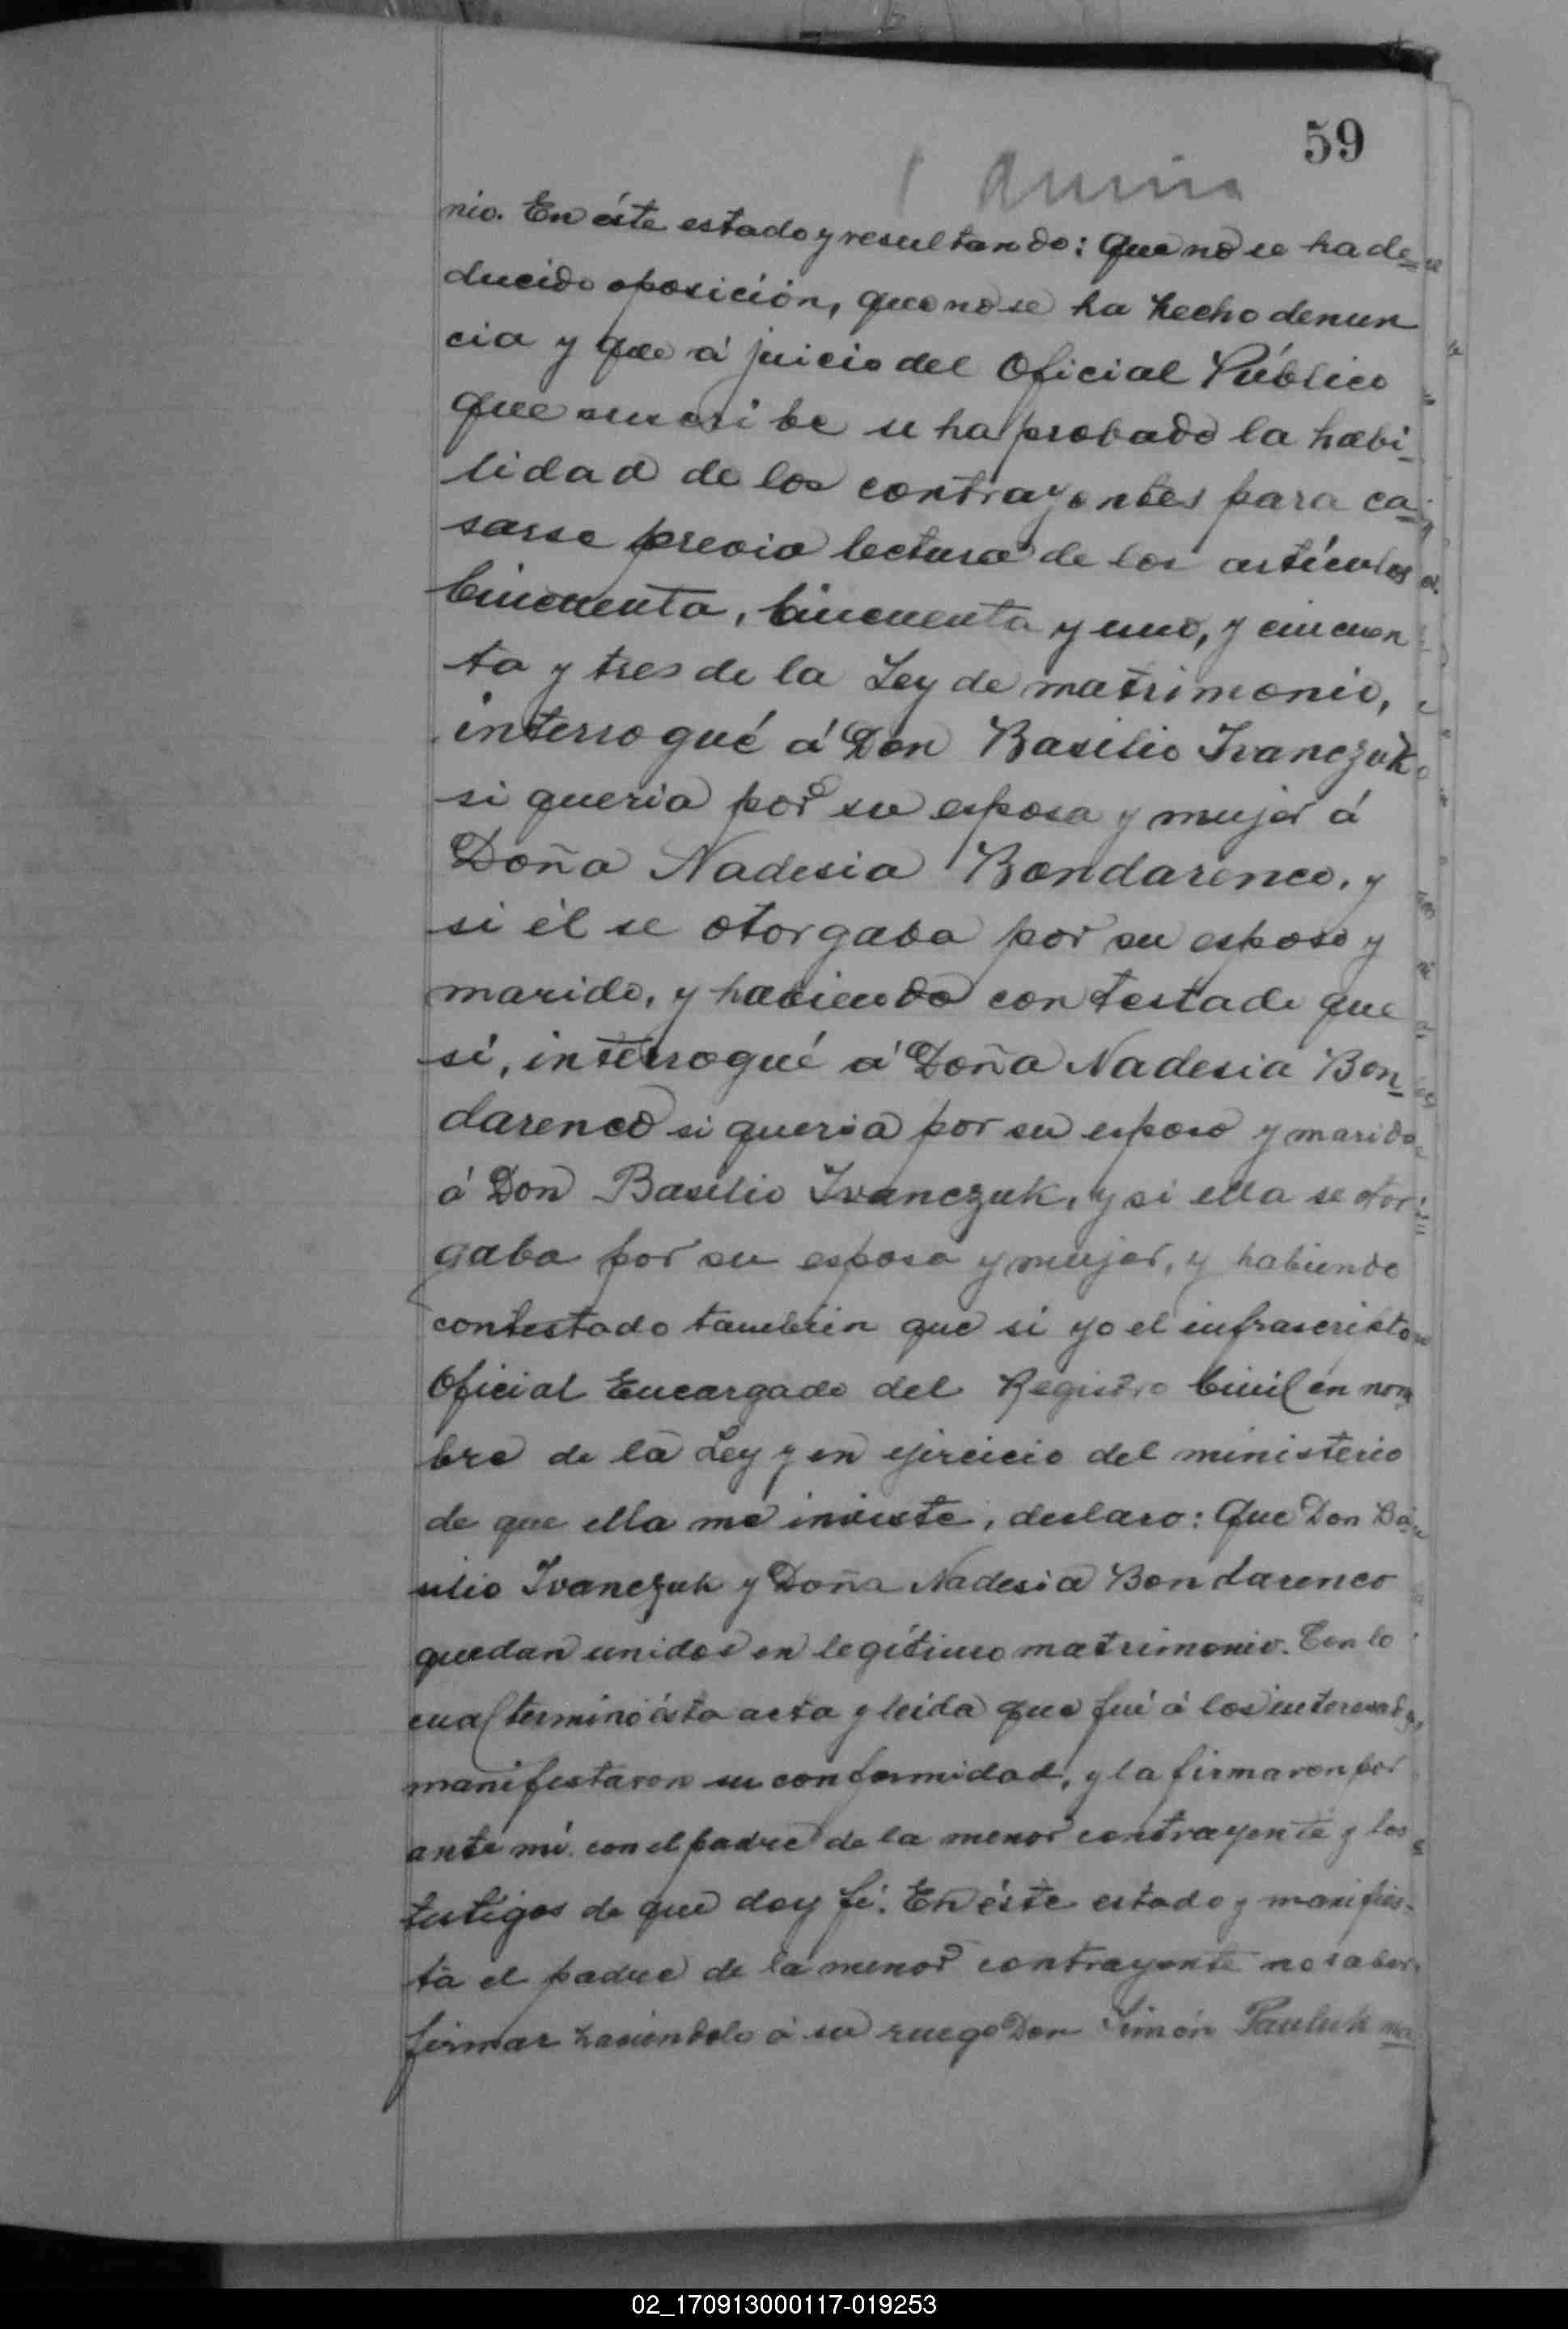 59
nio. En éste estado y resultando: Que no se ha de=
ducido oposición, que no se ha hecho denun
cia y que á juicio del Oficial Público
que suscribe se ha probado la habi-
lidad de los contrayentes para ca-
sarse previa lectura de los artículos
Cincuenta, Cincuenta y uno, y cincuen
ta y tres de la Ley de matrimonio,
interrogué á Don Basilio Ivanczuk
si queria por su esposa y mujer á
Doña Nadesia Bondarenco, y
si él se otorgaba por su esposo y
marido, y habiendo contestado que
sí, interrogué á Doña Nadesia Bon-
darenco si queria por su esposo y marido
á Don Basilio Ivanczuk, y si ella se otor
gaba por su esposa y mujer, y habiendo
contestado tambien que si yo el infrascripto
Oficial Encargado del Registro Civil en nom
bre de la Ley y en ejercicio del ministerio
de que ella me inviste, declaro: Que Don Ba-
silio Ivanczuk y Doña Nadesia Bondarenco
quedan unidos en legítimo matrimonio. Con lo
cual terminó ésta acta y leida que fué á los interesados,
manifestaron su conformidad, y la firmaron por
ante mí con el padre de la menor contrayente y los
testigos de que doy fé. En éste estado y manifies-
ta el padre de la menor contrayente no saber
firmar haciendolo á su ruego Don Simón Pauluk ma
02_170913000117-019253